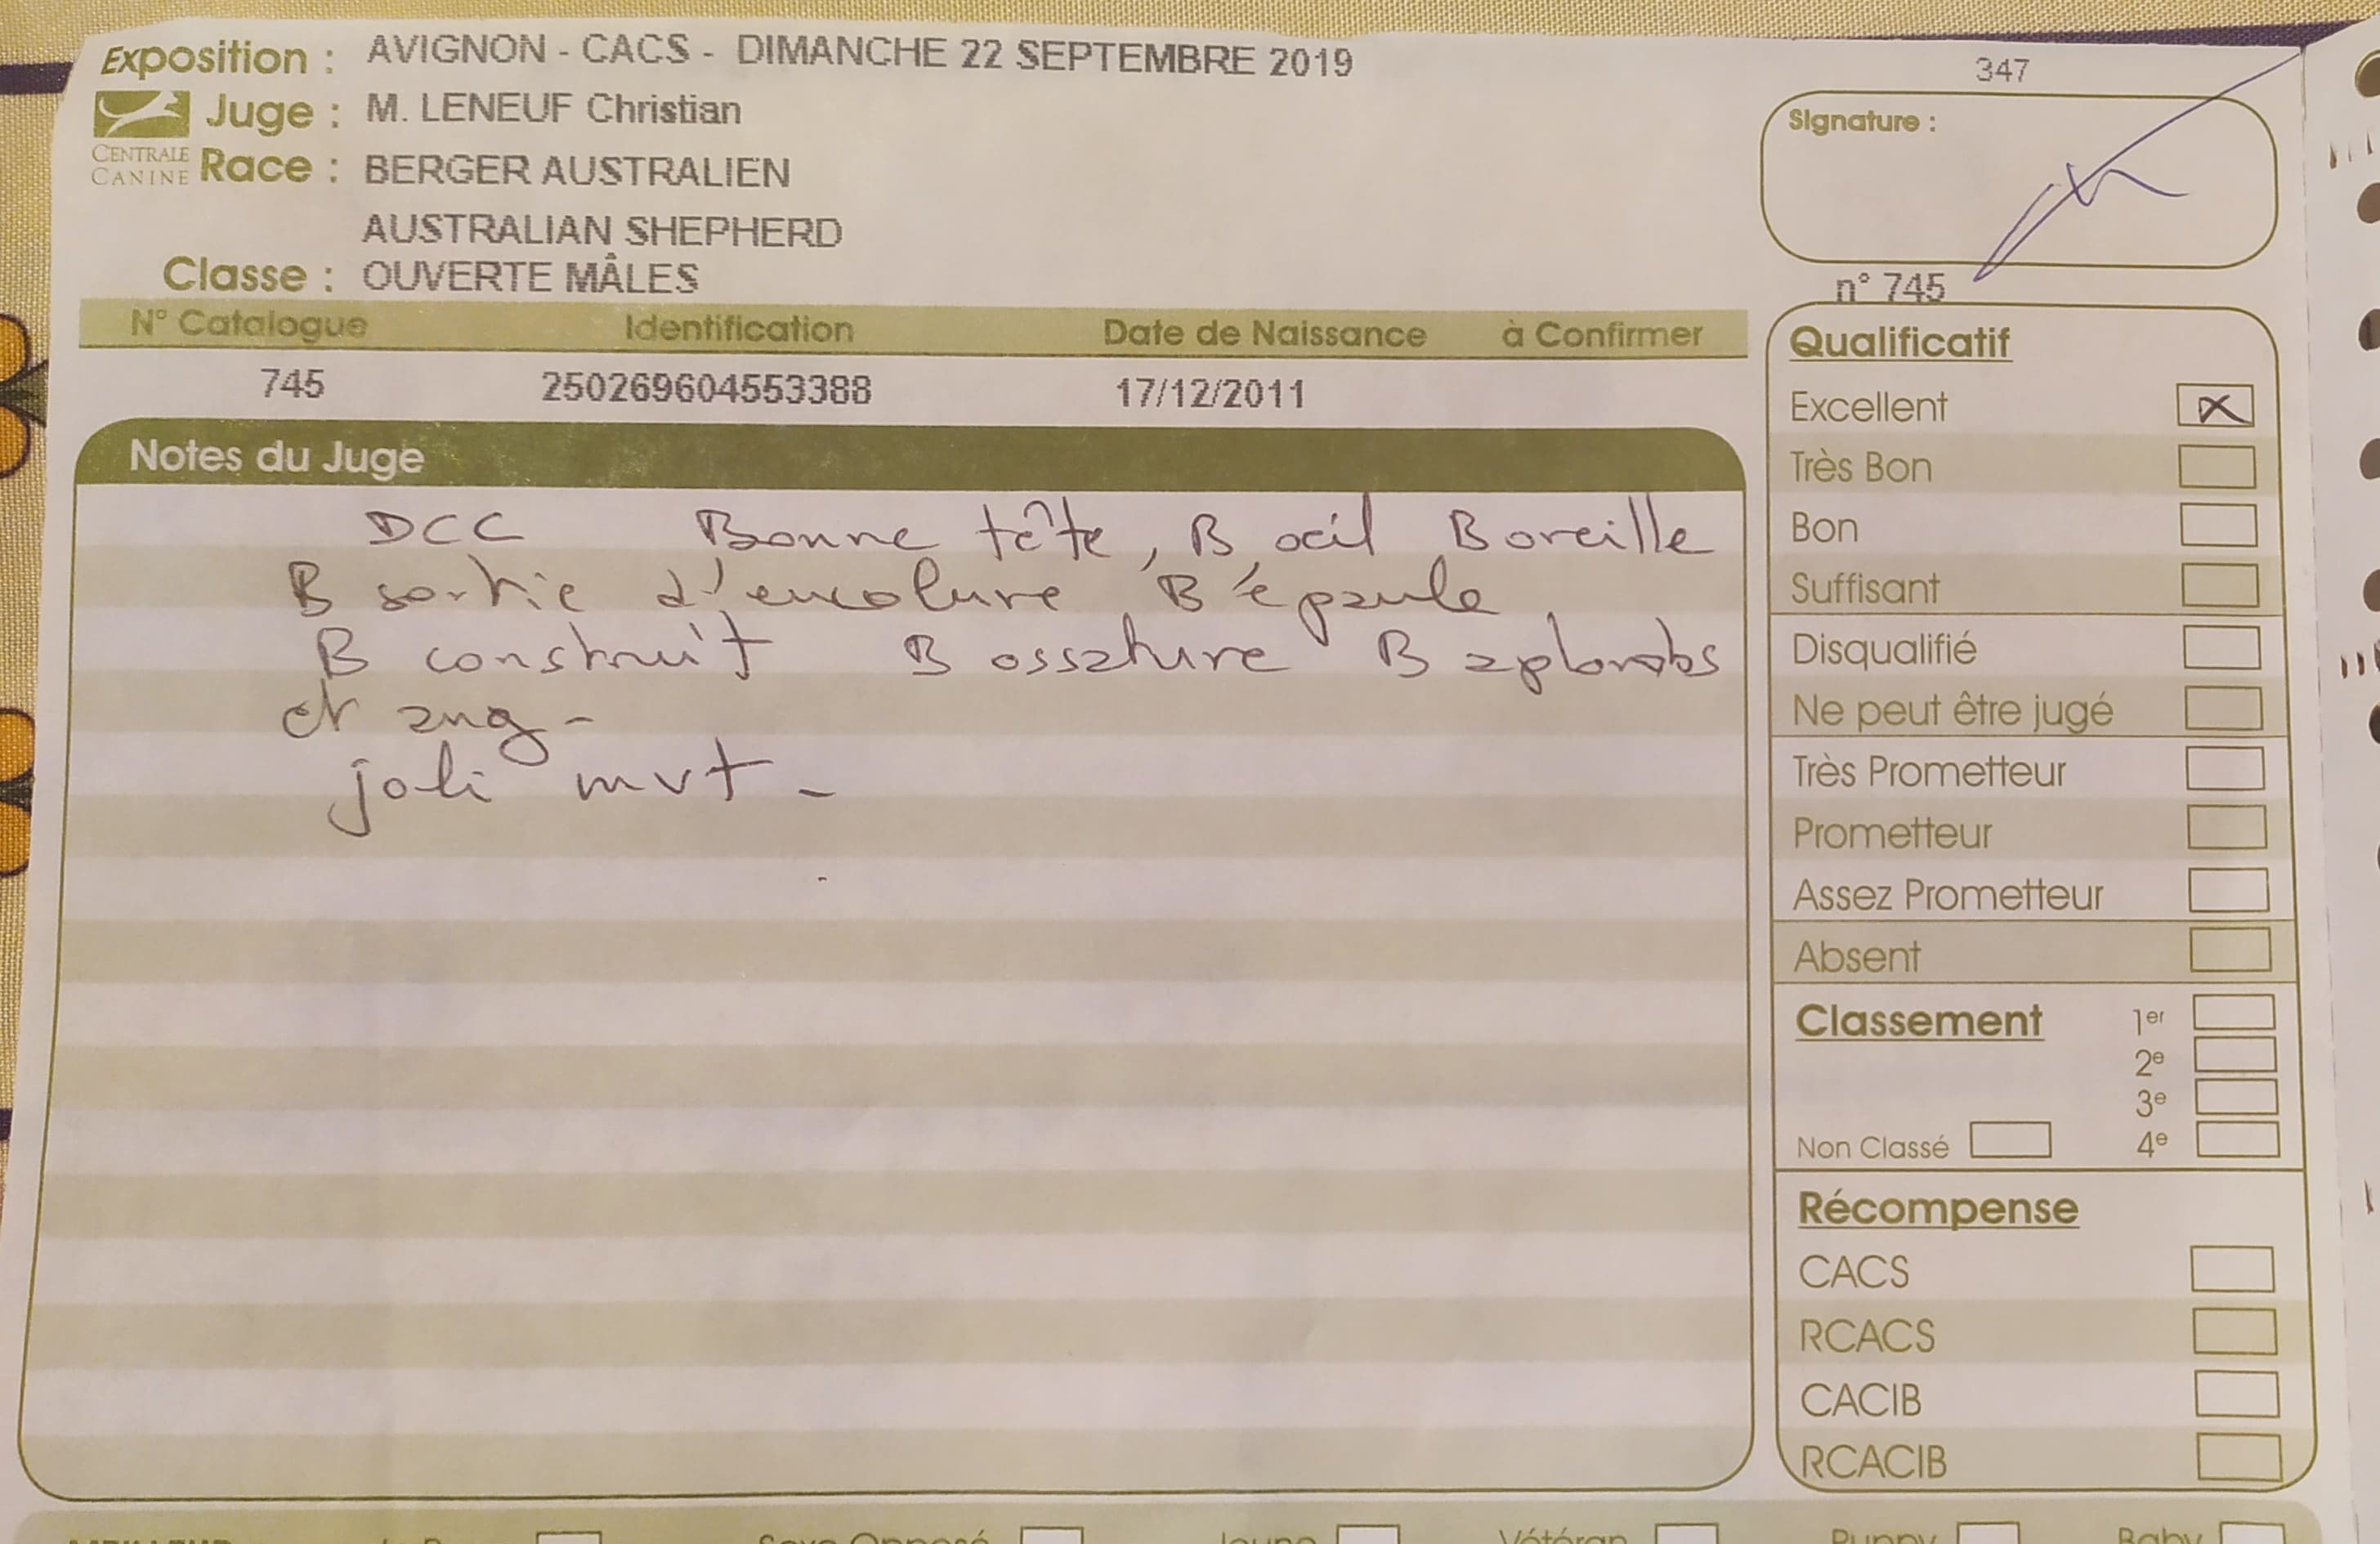 347
Exposition : AVIGNON - CACS - DIMANCHE 22 SEPTEMBRE 2019
Juge : M. LENEUF Christian
CENTRALE CANINE
Race : BERGER AUSTRALIEN
AUSTRALIAN SHEPHERD
Classe : OUVERTE MÂLES
Signature :
n° 745
N° Catalogue Identification Date de Naissance à Confirmer
745 250269604553388 17/12/2011
Notes du Juge
DCC Bonne tête, B oeil B oreille
B sortie d'encolure B épaule
B construit B ossature B aplombs
et ang -
joli mvt -
Qualificatif
Excellent X
Très Bon
Bon
Suffisant
Disqualifié
Ne peut être jugé
Très Prometteur
Prometteur
Assez Prometteur
Absent
Classement 1er
2e
3e
Non Classé 4e
Récompense
CACS
RCACS
CACIB
RCACIB
Sexe Opposé Jeune Vétéran Puppy Baby